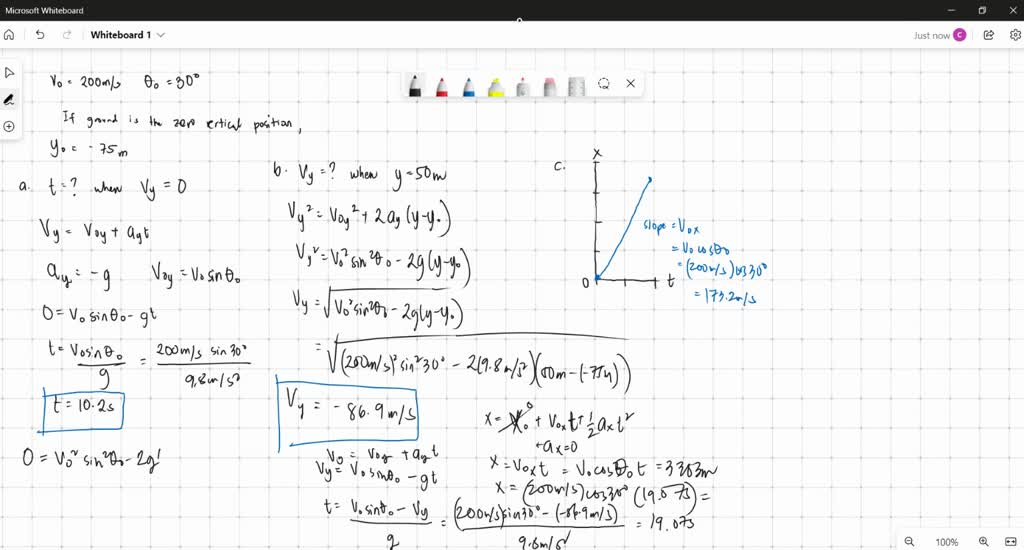 Microsoft Whiteboard
Whiteboard 1
Just now
C
v₀ = 200m/s θ₀ = 30°
If ground is the zero vertical position,
y₀ = -75m
a. t=? when Vy = 0
Vy = V₀y + ayt
ay = -g V₀y = V₀ sinθ₀
0 = V₀ sinθ₀ - gt
t = V₀sinθ₀ / g = 200m/s sin30° / 9.8m/s²
t = 10.2s
0 = V₀² sin²θ₀ - 2g
b. Vy = ? when y = 50m
Vy² = V₀y² + 2ay (y-y₀)
Vy² = V₀² sin²θ₀ - 2g (y-y₀)
Vy = √(V₀² sin²θ₀ - 2g(y-y₀))
= √((200m/s)² sin² 30° - 2(9.8m/s²)(50m - (-75m)))
Vy = -86.9m/s
V₀ = V₀y + ayt
Vy = V₀ sinθ₀ - gt
t = V₀ sinθ₀ - Vy / g = (200m/s)sin30° - (-86.9m/s) / 9.8m/s² = 19.07s
c.
x
0
t
slope = V₀x
= V₀ cosθ₀
= (200m/s) cos30°
= 173.2m/s
x = x₀ + V₀x t + ½ ax t²
0
ax = 0
x = V₀x t = V₀ cosθ₀ t = 3303m
x = (200m/s) cos30° (19.07s) =
100%